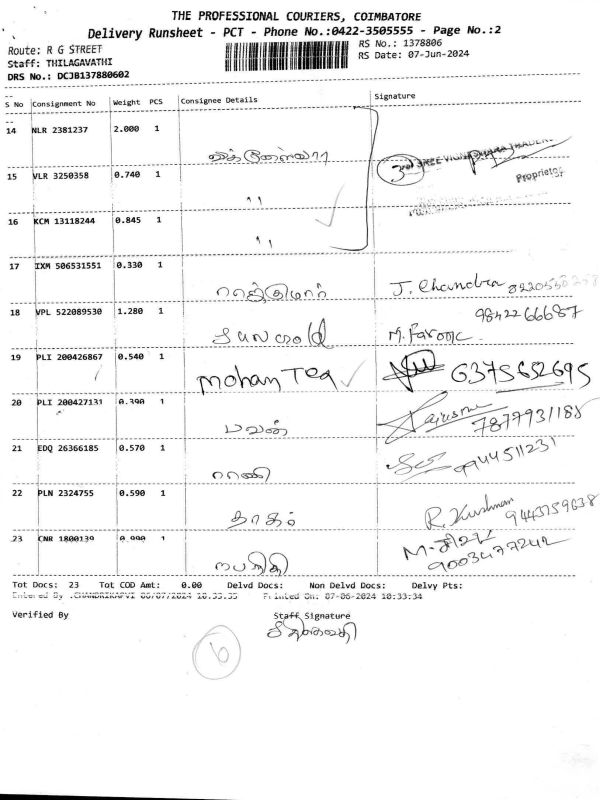 THE PROFESSIONAL COURIERS, COIMBATORE
Delivery Runsheet - PCT - Phone No.:0422-3505555 - Page No.:2
Route: R G STREET
RS No.: 1378806
Staff: THILAGAVATHI
RS Date: 07-Jun-2024
DRS No.: DCJB137880602
S No Consignment No Weight PCS Consignee Details Signature
14 NLR 2381237 2.000 1
15 VLR 3250358 0.740 1 " Proprietor
16 KCM 13118244 0.845 1 "
17 IXM 506531551 0.330 1 ராஜ்குமார் J. Chandra
18 VPL 522089530 1.280 1 98422 66687
M. Farook
19 PLI 200426867 0.540 1 Mohan Tea 6375652695
20 PLI 200427131 0.390 1 பவன் 7877931188
21 EDQ 26366185 0.570 1 ராணி 9944511231
22 PLN 2324755 0.590 1 தாகம் R. Kushman 9443759638
23 CNR 1800139 0.990 1 9003477242
Tot Docs: 23 Tot COD Amt: 0.00 Delvd Docs: Non Delvd Docs: Delvy Pts:
Entered By :CHANDRIKAPVI 06/07/2024 10:33:35 Printed On: 07-06-2024 10:33:34
Verified By Staff Signature
6